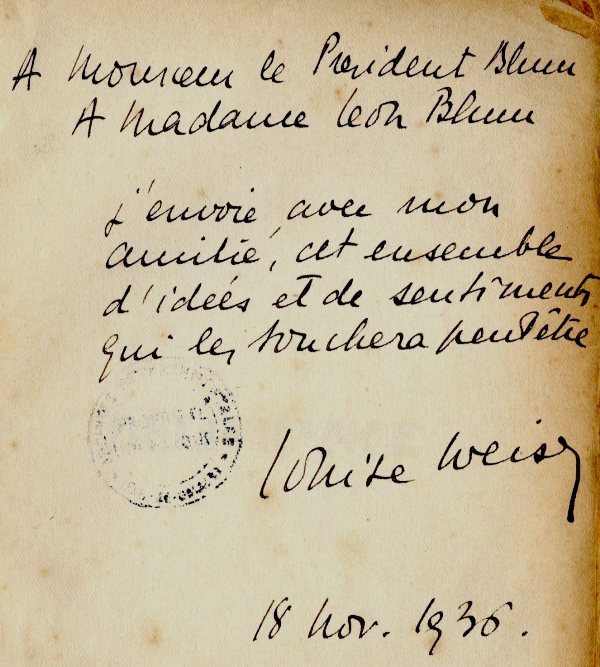 A Monsieur le President Blum
A Madame Leon Blum
j'envoie, avec mon
amitié, cet ensemble
d'idées et de sentiments
qui les touchera peut être
Louise Weiss
18 Nov. 1936.